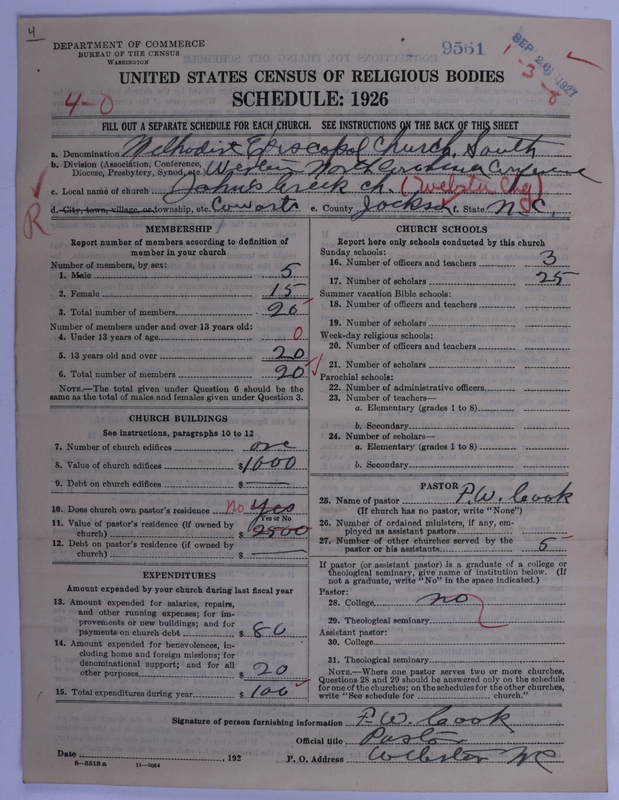 4
DEPARTMENT OF COMMERCE
BUREAU OF THE CENSUS
WASHINGTON
9561
SEP 26 1927
-3-8
4-0
UNITED STATES CENSUS OF RELIGIOUS BODIES
SCHEDULE: 1926
FILL OUT A SEPARATE SCHEDULE FOR EACH CHURCH. SEE INSTRUCTIONS ON THE BACK OF THIS SHEET
a. Denomination Methodist Episcopal Church, South
b. Division (Association, Conference, Diocese, Presbytery, Synod, etc.) Western North Carolina Conference
c. Local name of church Johns Creek Ch. (Webster Chg)
d. City, town, village, or township, etc. Cowarts e. County Jackson f. State N.C.
R
MEMBERSHIP
Report number of members according to definition of
member in your church
Number of members, by sex:
1. Male 5
2. Female 15
3. Total number of members 20
Number of members under and over 13 years old:
4. Under 13 years of age 0
5. 13 years old and over 20
6. Total number of members 20
NOTE.—The total given under Question 6 should be the
same as the total of males and females given under Question 3.
CHURCH BUILDINGS
See instructions, paragraphs 10 to 12
7. Number of church edifices one
8. Value of church edifices $1000
9. Debt on church edifices $
10. Does church own pastor's residence no Yes
Yes or No
11. Value of pastor's residence (if owned by
church) $ 2500
12. Debt on pastor's residence (if owned by
church) $
EXPENDITURES
Amount expended by your church during last fiscal year
13. Amount expended for salaries, repairs,
and other running expenses; for im-
provements or new buildings; and for
payments on church debt $ 80
14. Amount expended for benevolences, in-
cluding home and foreign missions; for
denominational support; and for all
other purposes $ 20
15. Total expenditures during year $ 100
CHURCH SCHOOLS
Report here only schools conducted by this church
Sunday schools:
16. Number of officers and teachers 3
17. Number of scholars 25
Summer vacation Bible schools:
18. Number of officers and teachers
19. Number of scholars
Week-day religious schools:
20. Number of officers and teachers
21. Number of scholars
Parochial schools:
22. Number of administrative officers
23. Number of teachers—
a. Elementary (grades 1 to 8)
b. Secondary
24. Number of scholars—
a. Elementary (grades 1 to 8)
b. Secondary
PASTOR
25. Name of pastor P.W. Cook
(If church has no pastor, write "None")
26. Number of ordained ministers, if any, em-
ployed as assistant pastors
27. Number of other churches served by the
pastor or his assistants 5
If pastor (or assistant pastor) is a graduate of a college or
theological seminary, give name of institution below. (If
not a graduate, write "No" in the space indicated.)
Pastor:
28. College no
29. Theological seminary
Assistant pastor:
30. College
31. Theological seminary
NOTE.—Where one pastor serves two or more churches,
Questions 28 and 29 should be answered only on the schedule
for one of the churches; on the schedules for the other churches,
write "See schedule for church."
Signature of person furnishing information P.W. Cook
Official title Pastor
Date , 192 P. O. Address Webster NC
8-5518 a 11-9064